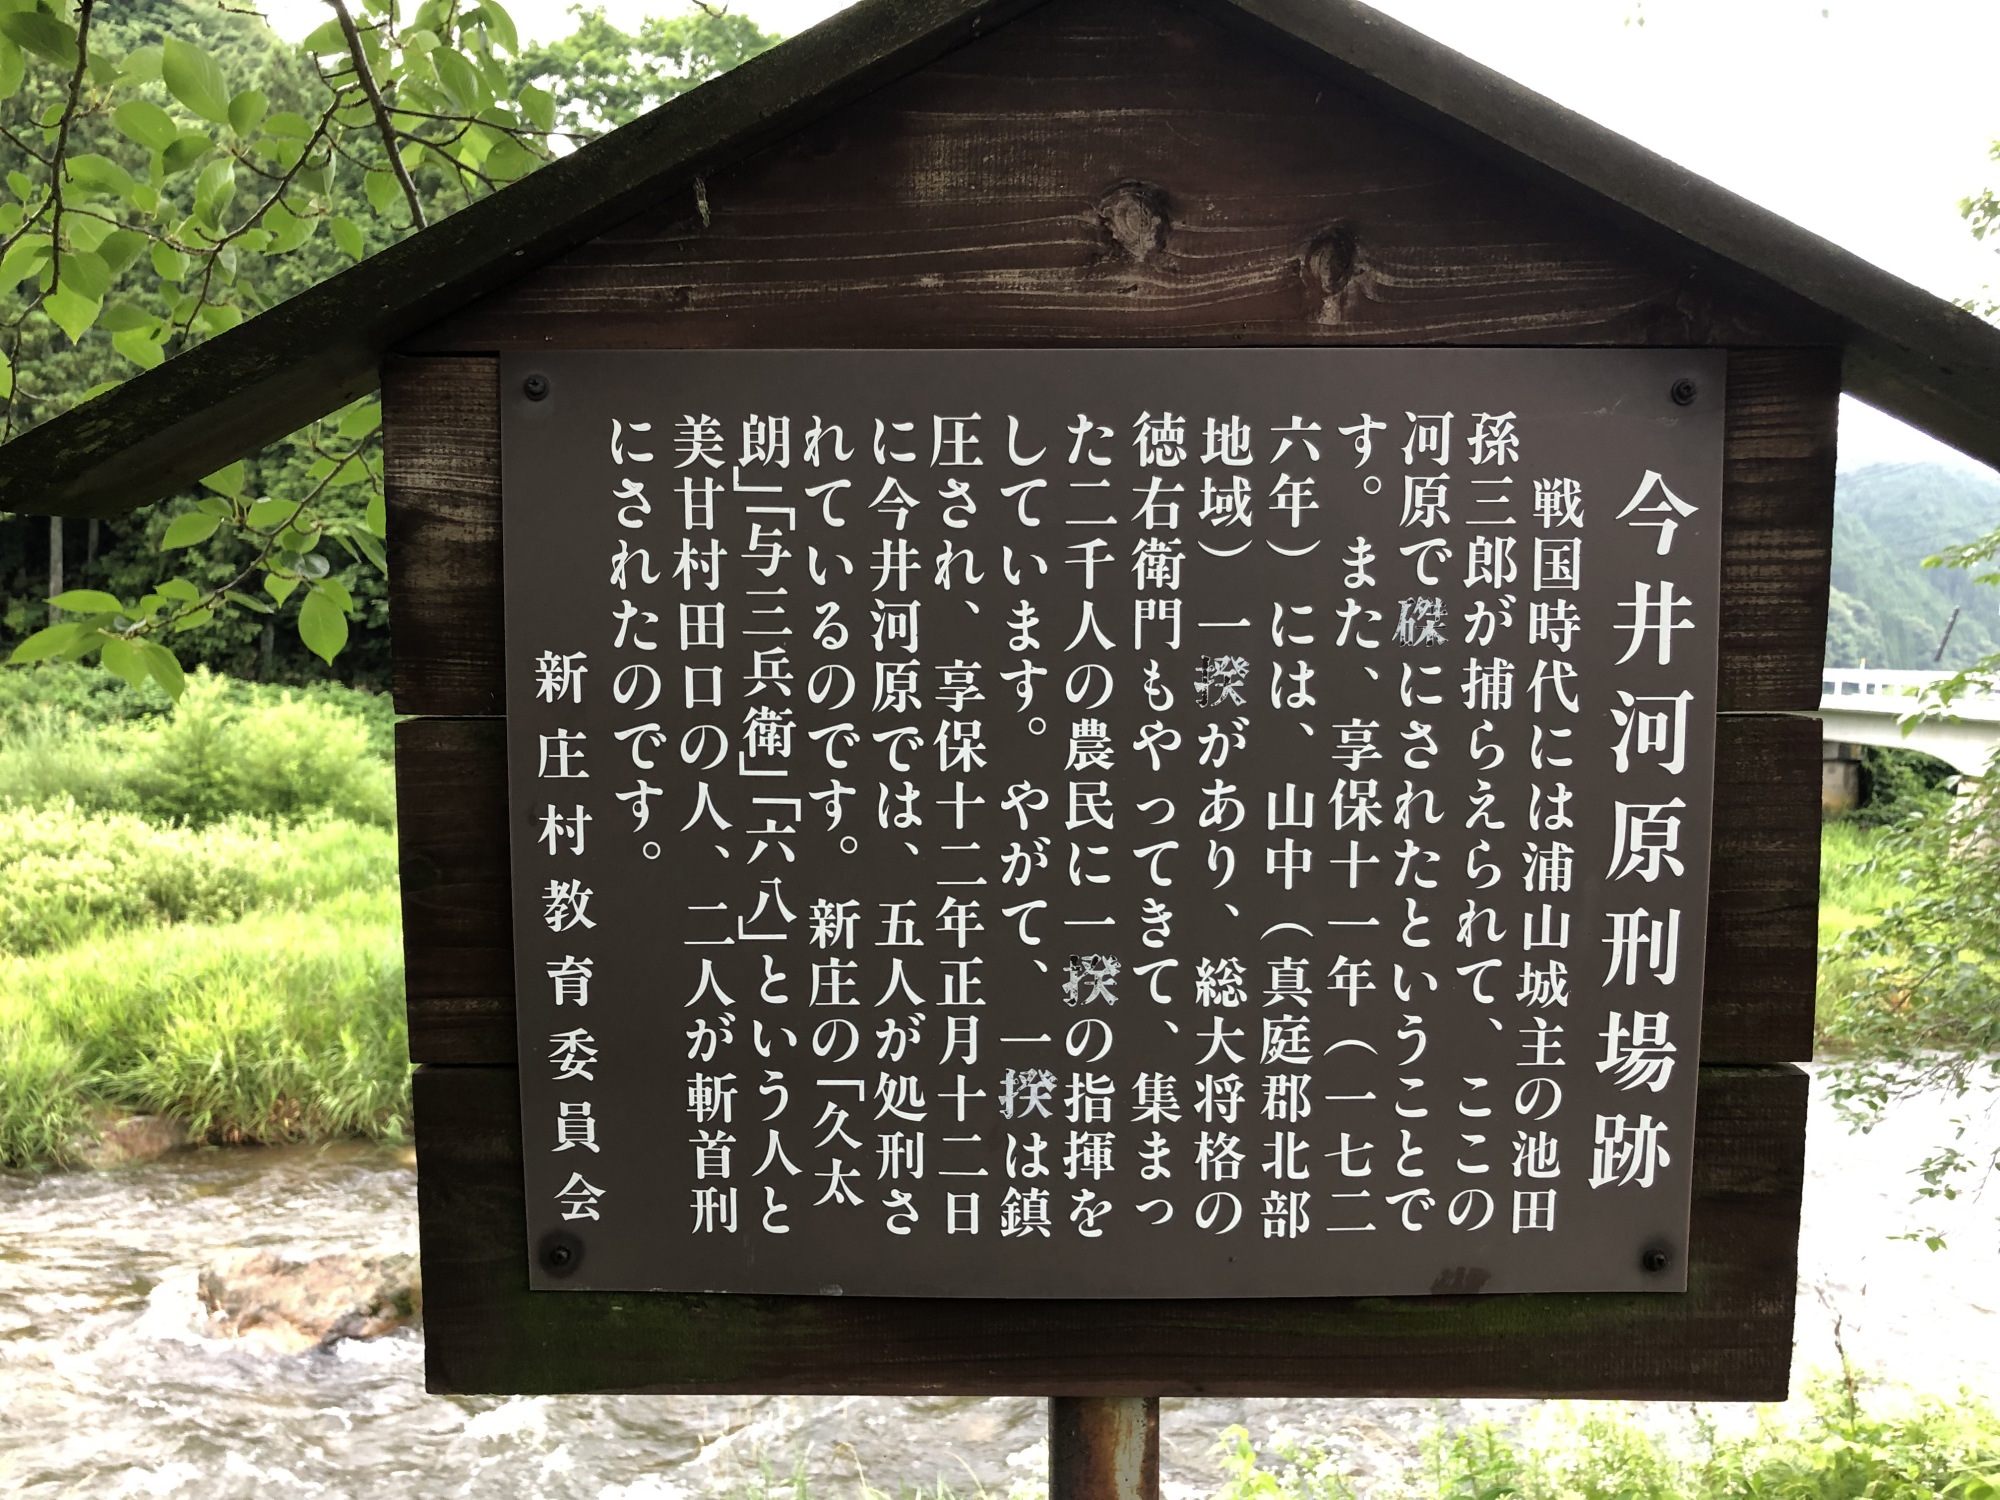 今井河原刑場跡
戦国時代には浦山城主の池田
孫三郎が捕らえられて、ここの
河原で磔にされたということで
す。また、享保十一年（一七二
六年）には、山中（真庭郡北部
地域）一揆があり、総大将格の
徳右衛門もやってきて、集まっ
た二千人の農民に一揆の指揮を
しています。やがて、一揆は鎮
圧され、享保十二年正月十二日
に今井河原では、五人が処刑さ
れているのです。新庄の「久太
朗」「与三兵衛」「六八」という人と
美甘村田口の人、二人が斬首刑
にされたのです。
新庄村教育委員会